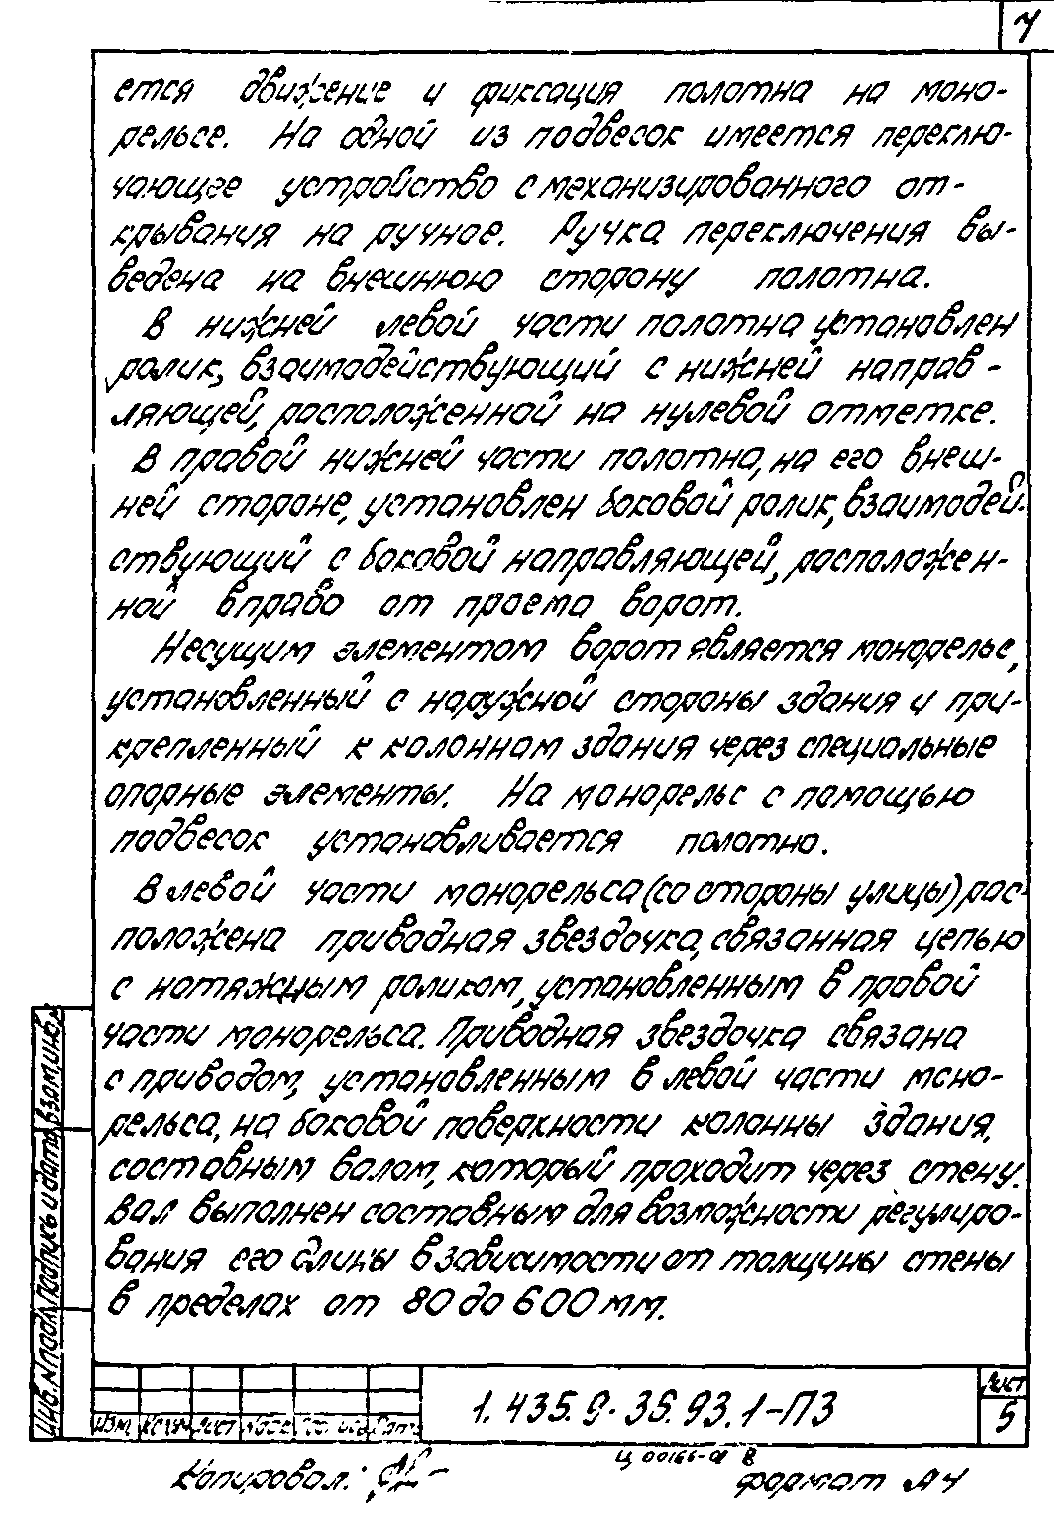 7
ется движение и фиксация полотна на моно-
рельсе. На одной из подвесок имеется переклю-
чающее устройство с механизированного от-
крывания на ручное. Ручка переключения вы-
ведена на внешнюю сторону полотна.
В нижней левой части полотна установлен
ролик, взаимодействующий с нижней направ-
ляющей, расположенной на нулевой отметке.
В правой нижней части полотна, на его внеш-
ней стороне, установлен боковой ролик, взаимодей-
ствующий с боковой направляющей, расположен-
ной вправо от проема ворот.
Несущим элементом ворот является монорельс,
установленный с наружной стороны здания и при-
крепленный к колоннам здания через специальные
опорные элементы. На монорельс с помощью
подвесок устанавливается полотно.
В левой части монорельса (со стороны улицы) рас-
положена приводная звездочка, связанная цепью
с натяжным роликом, установленным в правой
части монорельса. Приводная звездочка связана
с приводом, установленным в левой части моно-
рельса, на боковой поверхности колонны здания,
составным валом, который проходит через стену.
Вал выполнен составным для возможности регулиро-
вания его длины в зависимости от толщины стены
в пределах от 80 до 600 мм.
Взам.инв.№
Подпись и дата
Инв.№подл.
Изм. Кол.уч Лист №док Подпись Дата
1.435.9-35.93.1-ПЗ
Лист
5
Ц 00166-01 8
Копировал:
Формат А4